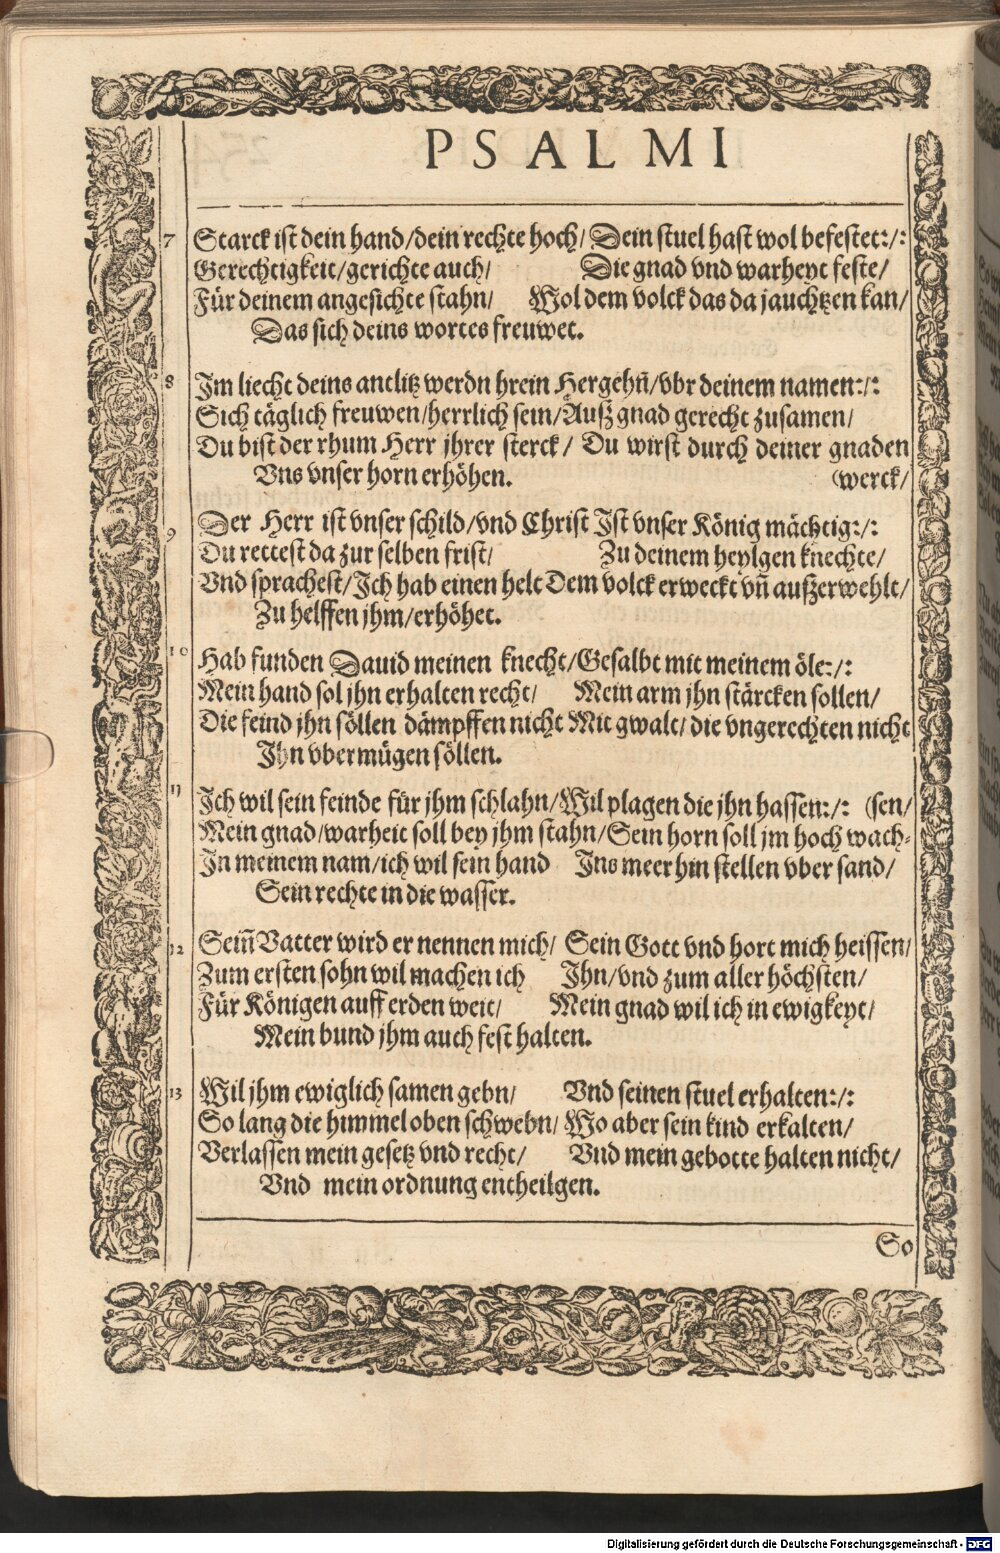 PSALMI
7 Starck ist dein hand/dein rechte hoch/ Dein stuel hast wol befestet:/:
Gerechtigkeit/gerichte auch/ Die gnad vnd warheyt feste/
Für deinem angesichte stahn/ Wol dem volck das da jauchtzen kan/
Das sich deins wortes freuwet.
8 Im liecht deins antlitz werdn hrein Hergehn̄/vbr deinem namen:/:
Sich täglich freuwen/herrlich sein/Auß gnad gerecht zusamen/
Du bist der rhum Herr jhrer sterck/ Du wirst durch deiner gnaden
Vns vnser horn erhöhen. (werck/
9 Der Herr ist vnser schild/vnd Christ Ist vnser König mächtig:/:
Du rettest da zur selben frist/ Zu deinem heylgen knechte/
Vnd sprachest/Ich hab einen helt Dem volck erweckt vn̄ außerwehlt/
Zu helffen jhm/erhöhet.
10 Hab funden Dauid meinen knecht/Gesalbt mit meinem öle:/:
Mein hand sol jhn erhalten recht/ Mein arm jhn stärcken sollen/
Die feind jhn söllen dämpffen nicht Mit gwalt/die vngerechten nicht
Ihn vbermügen söllen.
11 Ich wil sein feinde für jhm schlahn/Wil plagen die jhn hassen:/: (sen/
Mein gnad/warheit soll bey jhm stahn/Sein horn soll jm hoch wach-
In meinem nam/ich wil sein hand Ins meer hin stellen vber sand/
Sein rechte in die wasser.
12 Sein̄ Vatter wird er nennen mich/ Sein Gott vnd hort mich heissen/
Zum ersten sohn wil machen ich Ihn/vnd zum aller höchsten/
Für Königen auff erden weit/ Mein gnad wil ich in ewigkeyt/
Mein bund jhm auch fest halten.
13 Wil jhm ewiglich samen gebn/ Vnd seinen stuel erhalten:/:
So lang die himmel oben schwebn/ Wo aber sein kind erkalten/
Verlassen mein gesetz vnd recht/ Vnd mein gebotte halten nicht/
Vnd mein ordnung entheilgen.
So
Digitalisierung gefördert durch die Deutsche Forschungsgemeinschaft - DFG